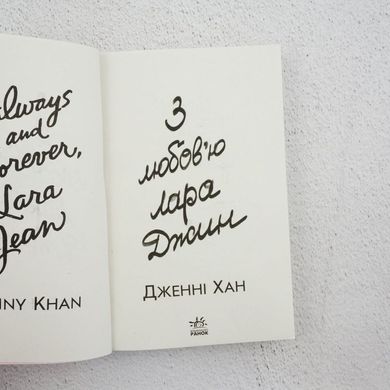 Always
and
Forever,
Lara
Jean
NNY KHAN
З
любов'ю
лара
Джин
ДЖЕННІ ХАН
РАНОК